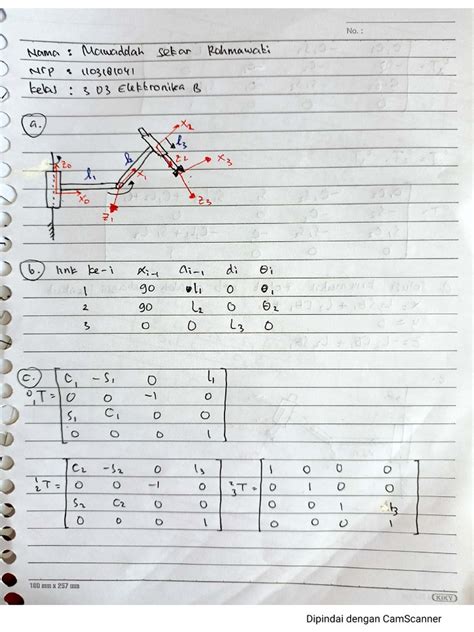 No. :
Nama : Mawaddah Sekar Rahmawati
Nrp : 1103181041
Kelas : 3 D3 Elektronika B
a.
x2
l3
z0
l1
l2
x1
z2
x3
x0
z1
z3
b. link ke-i αi-1 ai-1 di θi
1 90 l1 0 θ1
2 90 L2 0 θ2
3 0 0 L3 0
c.
C1 -S1 0 l1
0 1 T = 0 0 -1 0
S1 C1 0 0
0 0 0 1
C2 -S2 0 l3
1 2 T = 0 0 -1 0
S2 C2 0 0
0 0 0 1
1 0 0 0
2 3 T = 0 1 0 0
0 0 1 l3
0 0 0 1
180 mm x 257 mm
KIKY
Dipindai dengan CamScanner